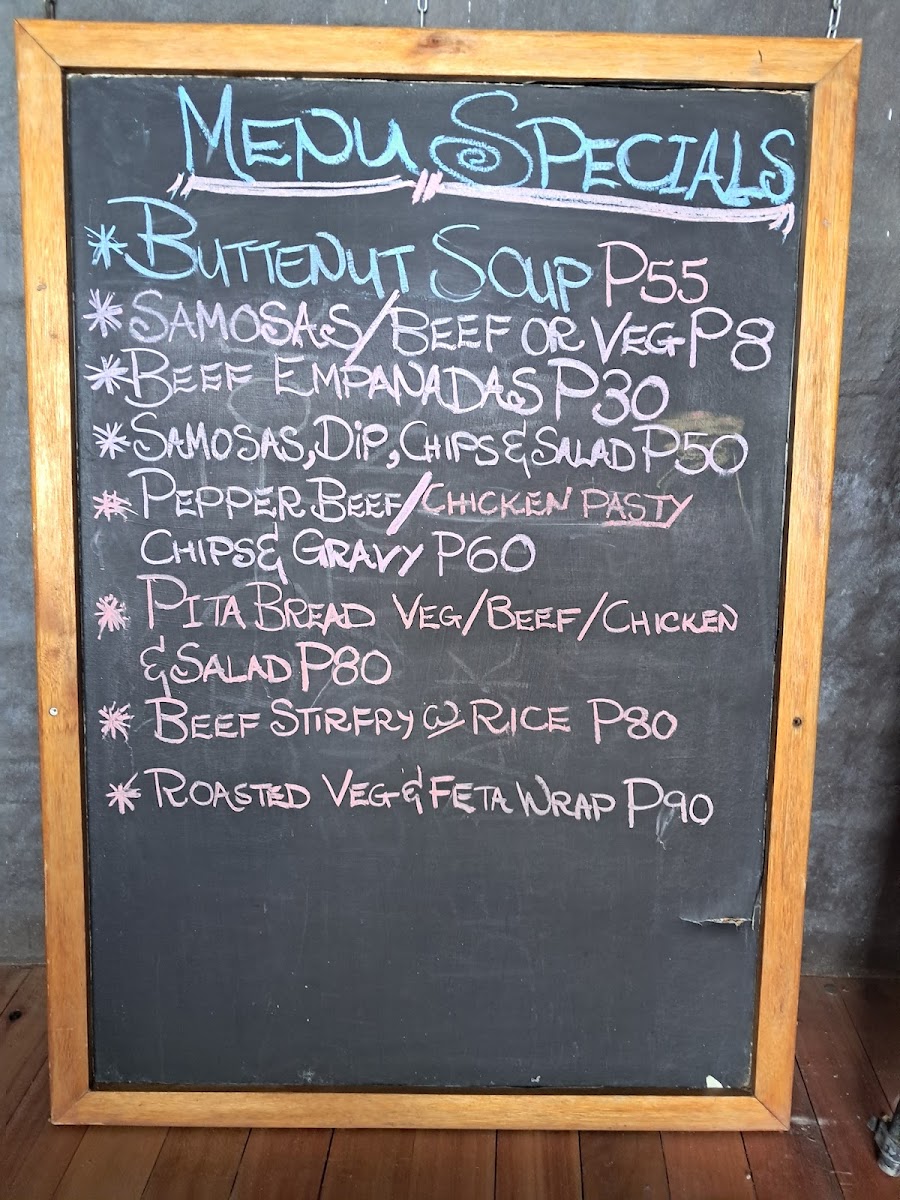 MENU SPECIALS
* BUTTENUT SOUP P55
* SAMOSAS/BEEF OR VEG P8
* BEEF EMPANADAS P30
* SAMOSAS, DIP, CHIPS & SALAD P50
* PEPPER BEEF/CHICKEN PASTY
CHIPS & GRAVY P60
* PITA BREAD VEG/BEEF/CHICKEN
& SALAD P80
* BEEF STIRFRY W RICE P80
* ROASTED VEG & FETA WRAP P90